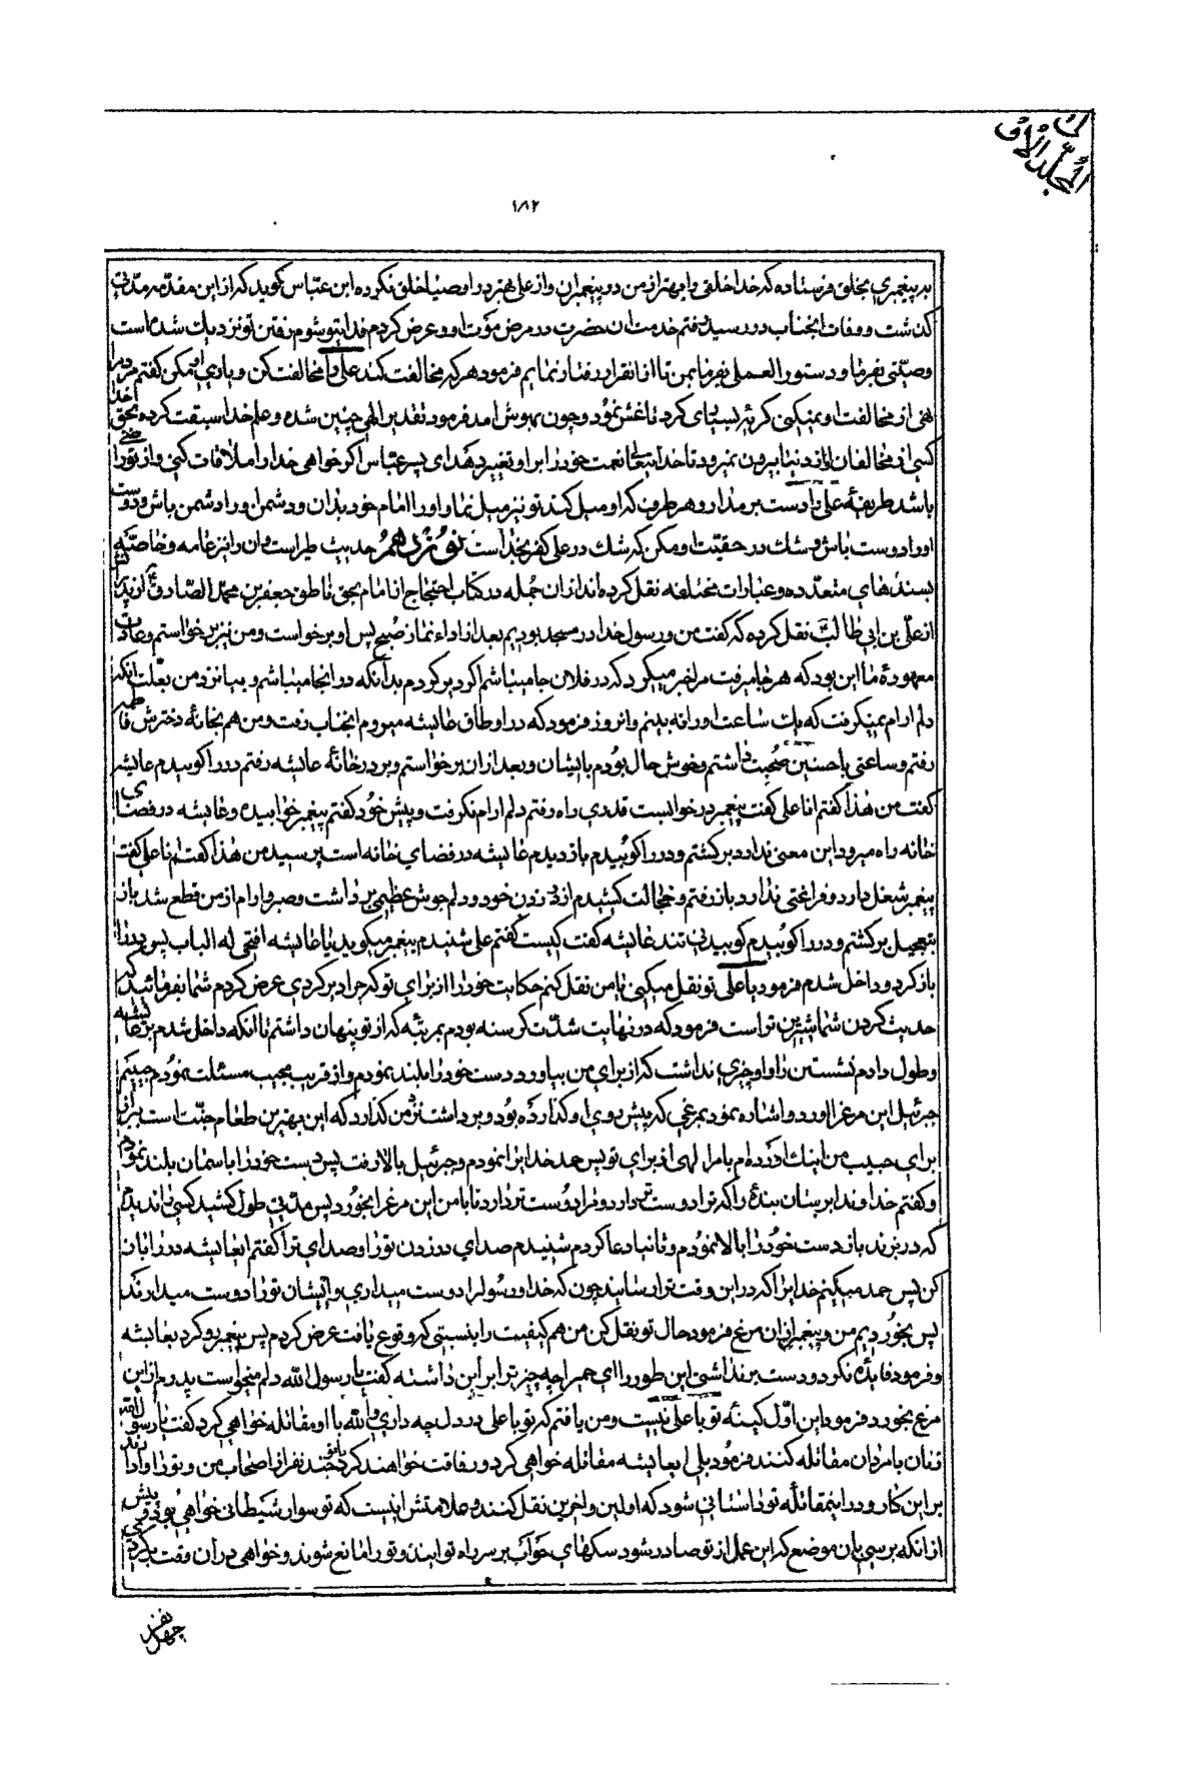 المجلد الاول
۱۸۲
به پیغمبری بخلق فرستاده که خدا خلقی را بهتر از من در پیغمبران و از علی بهتر در اوصیا خلق نکرده ابن عباس گوید که از این مقدمه مدتی
گذشت و وفات انجناب در رسید رفتم خدمت ان حضرت در مرض موت او و عرض کردم فدایتو شوم رفتن تو نزدیک شده است
وصیتی بفرما و دستور العملی بفرما بمن تا از انقرار رفتار نمایم فرمود هر که مخالفت کند علی را مخالفت کن و یاری او مکن گفتم مردم را
نهی از مخالفت او نمیکنی گریه بسیاری کرد تا غش نمود و چون بهوش امد فرمود تقدیر الهی چنین شده و علم خدا سبقت کرده بحق خدا
کسی از مخالفان او از دنیا بیرون نمیرود تا خدایتعالی نعمت خود را بر او تغییر دهد ای پسر عباس اگر خواهی خدا را ملاقات کنی و از تو راضی
باشد طریقهٔ علی را دست بر مدار و هر طرف که او میل کند تو نیز میل نما و او را امام خود بدان و دشمن او را دشمن باش و دوست
او را دوست باش و شک در حقیت او مکن که شک در علی کفر بخدا است نوزدهم حدیث طیر است و ان را نیز عامه و خاصه
بسندهای متعدده و عبارات مختلفه نقل کرده‌اند از ان جمله در کتاب احتجاج از امام بحق ناطق جعفر بن محمد الصادق از پدرش
از علی بن ابی طالب نقل کرده که گفت من و رسول خدا در مسجد بودیم بعد از اداء نماز صبح پس او برخواست و من نیز برخواستم و عادت
معهودهٔ ما این بود که هر جا میرفت مرا خبر میکرد که در فلان جا میباشم اگر دیر کردم بدانکه در انجا میباشم و بیا نزد من بعلت انکه
دلم ارام نمیگرفت که یک ساعت او را نه بینم و انروز فرمود که در اوطاق عایشه میروم انجناب رفت و من هم بخانهٔ دخترش فاطمه
رفتم و ساعتی با حسنین صحبت داشتم و خوش حال بودم بایشان و بعد از ان برخواستم و بر در خانهٔ عایشه رفتم در را کوبیدم عایشه
گفت من هذا گفتم انا علی گفت پیغمبر در خوابست قدری راه رفتم دلم ارام نگرفت و پیش خود گفتم پیغمبر خوابیده و عایشه در فضای
خانه راه میرود این معنی ندارد برگشتم و در را کوبیدم باز دیدم عایشه در فضای خانه است پرسید من هذا گفتم انا علی گفت
پیغمبر شغل دارد و فراغتی ندارد باز رفتم و خجالت کشیدم از در زدن خود و دلم جوش عظیمی برداشت و صبر و ارام از من قطع شد باز
بتعجیل برگشتم و در را کوبیدم کوبیدنی تند عایشه گفت کیست گفتم علی شنیدم پیغمبر میگوید یا عایشه افتحی له الباب پس در را
باز کرد و داخل شدم فرمود یا علی تو نقل میکنی یا من نقل کنم حکایت خود را از برای تو که چرا دیر کردی عرض کردم شما بفرمائید که
حدیث کردن شما شیرین تر است فرمود که در نهایت شدت گرسنه بودم بمرتبهٔ که از تو پنهان داشتم تا انکه داخل شدم بر عایشه
و طول دادم نشستن را و او چیزی نداشت که از برای من بیاورد دست خود را بلند نمودم و از قریب مجیب مسئلت نمودم حبیبم
جبرئیل این مرغ را اورد و اشاره نمود بمرغی که پیش روی او گذارده بود و برداشت نزد من گذارد که این بهترین طعام جنت است بریان
برای حبیب من اینک اورده‌ام بامر الهی از برای تو پس حمد خدا را نمودم و جبرئیل بالا رفت پس دست خود را باسمان بلند نمودم
و گفتم خداوندا برسان بندهٔ را که ترا دوست تر دارد و مرا دوست تر دارد تا با من این مرغ را بخورد پس مدتی طول کشید کسی را ندیدم
که در بزند باز دست خود را بالا نمودم و ثانیا دعا کردم شنیدم صدای در زدن تو را و صدای ترا گفتم ایعایشه در را باز
کن پس حمد میکنم خدا را که در این وقت ترا رسانید چون که خدا و رسول را دوست میداری و ایشان تو را دوست میدارند
پس بخوردیم من و پیغمبر از ان مرغ فرمود حال تو نقل کن من هم کیفیت را بنسبتی که وقوع یافت عرض کردم پس پیغمبر رو کرد بعایشه
و فرمود فایدهٔ نکرد و دست برنداشتی این طور را ای حمیرا چه چیز ترا بر این داشته گفت یا رسول الله دلم میخواست پدرم از این
مرغ بخورد فرمود این اول کینهٔ تو با علی نیست و من یافتم که تو با علی در دل چه داری والله با او مقاتله خواهی کرد گفت یا رسول الله
زنان با مردان مقاتله کنند فرمود بلی ایعایشه مقاتله خواهی کرد و رفاقت خواهند کرد با تو چند نفر از اصحاب من و تو را وادارند
بر این کار و در اینمقاتله تو داستانی شود که اولین و اخرین نقل کنند و علامتش اینست که تو سوار شیطانی خواهی بود و پیش
از انکه برسی بان موضع که این عمل از تو صادر شود سگهای حوآب بر سر راه تو ایند و تو را مانع شوند و خواهی در ان وقت برگردی
چهل نفر